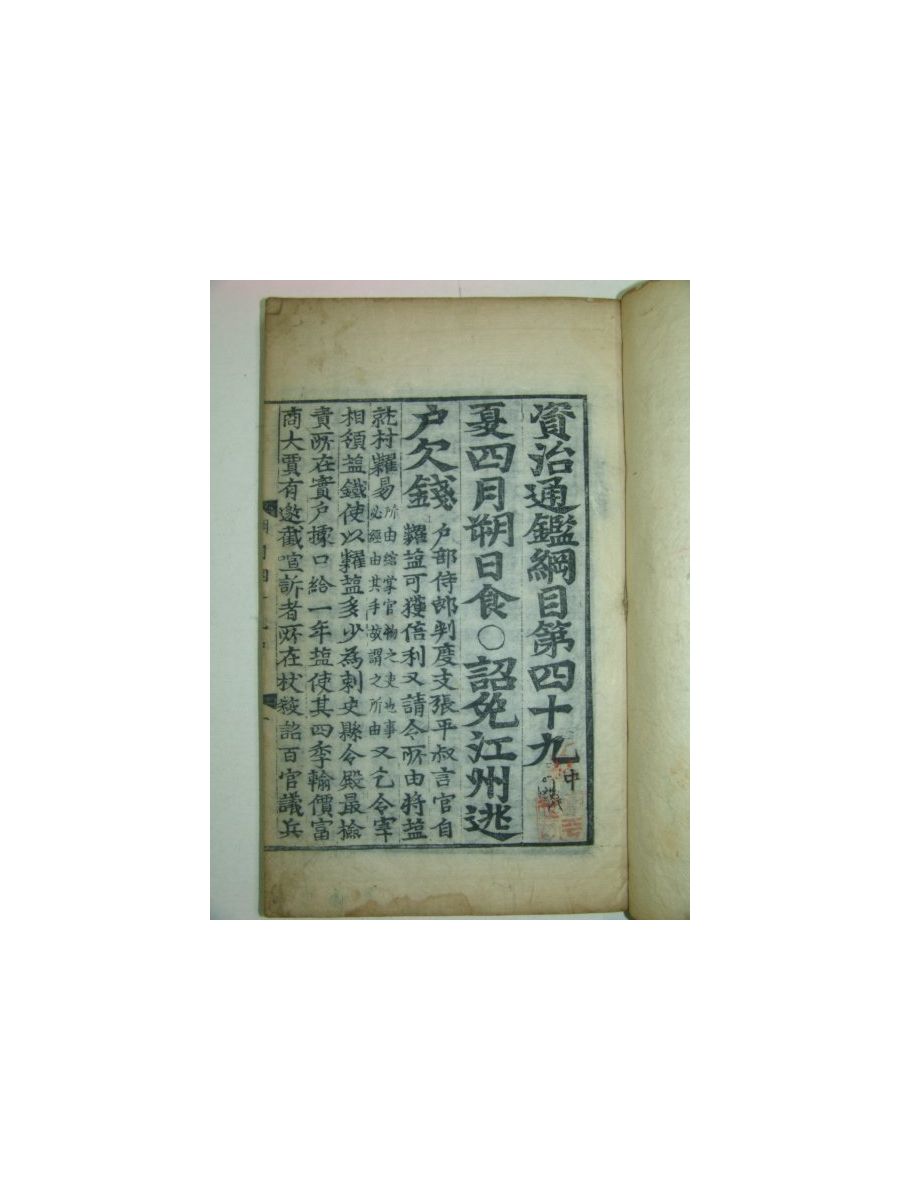 資治通鑑綱目第四十九 中
夏四月朔日食○詔免江州逃
户欠錢 户部侍郎判度支張平叔言官自
糶盐可獲倍利又請令所由將盐
就村糶易 所由綰掌官物之吏也事
必經由其手故謂之所由 又乞令宰
相領盐鐵使以糶盐多少為刺史縣令殿最撿
責所在實户據口給一年盐使其四季輸價富
商大賈有邀截喧訴者所在杖殺詔百官議兵